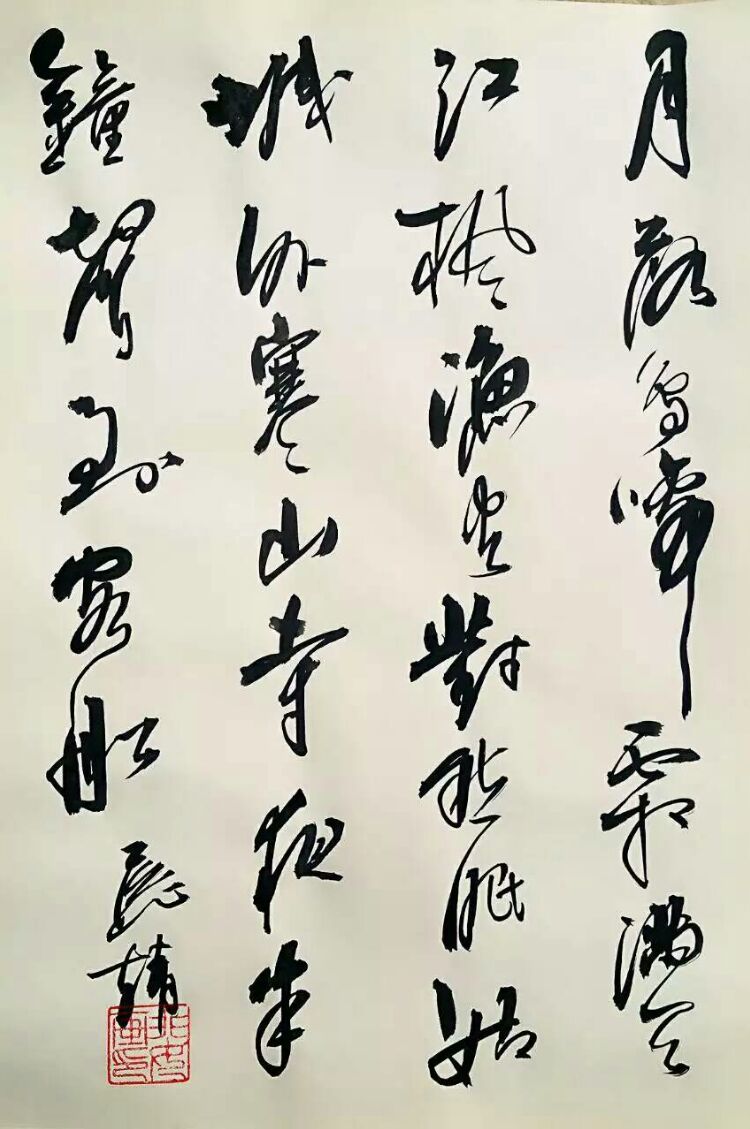 月落烏啼霜滿天
江楓漁火對愁眠姑
城外寒山寺夜半
鐘聲到客船